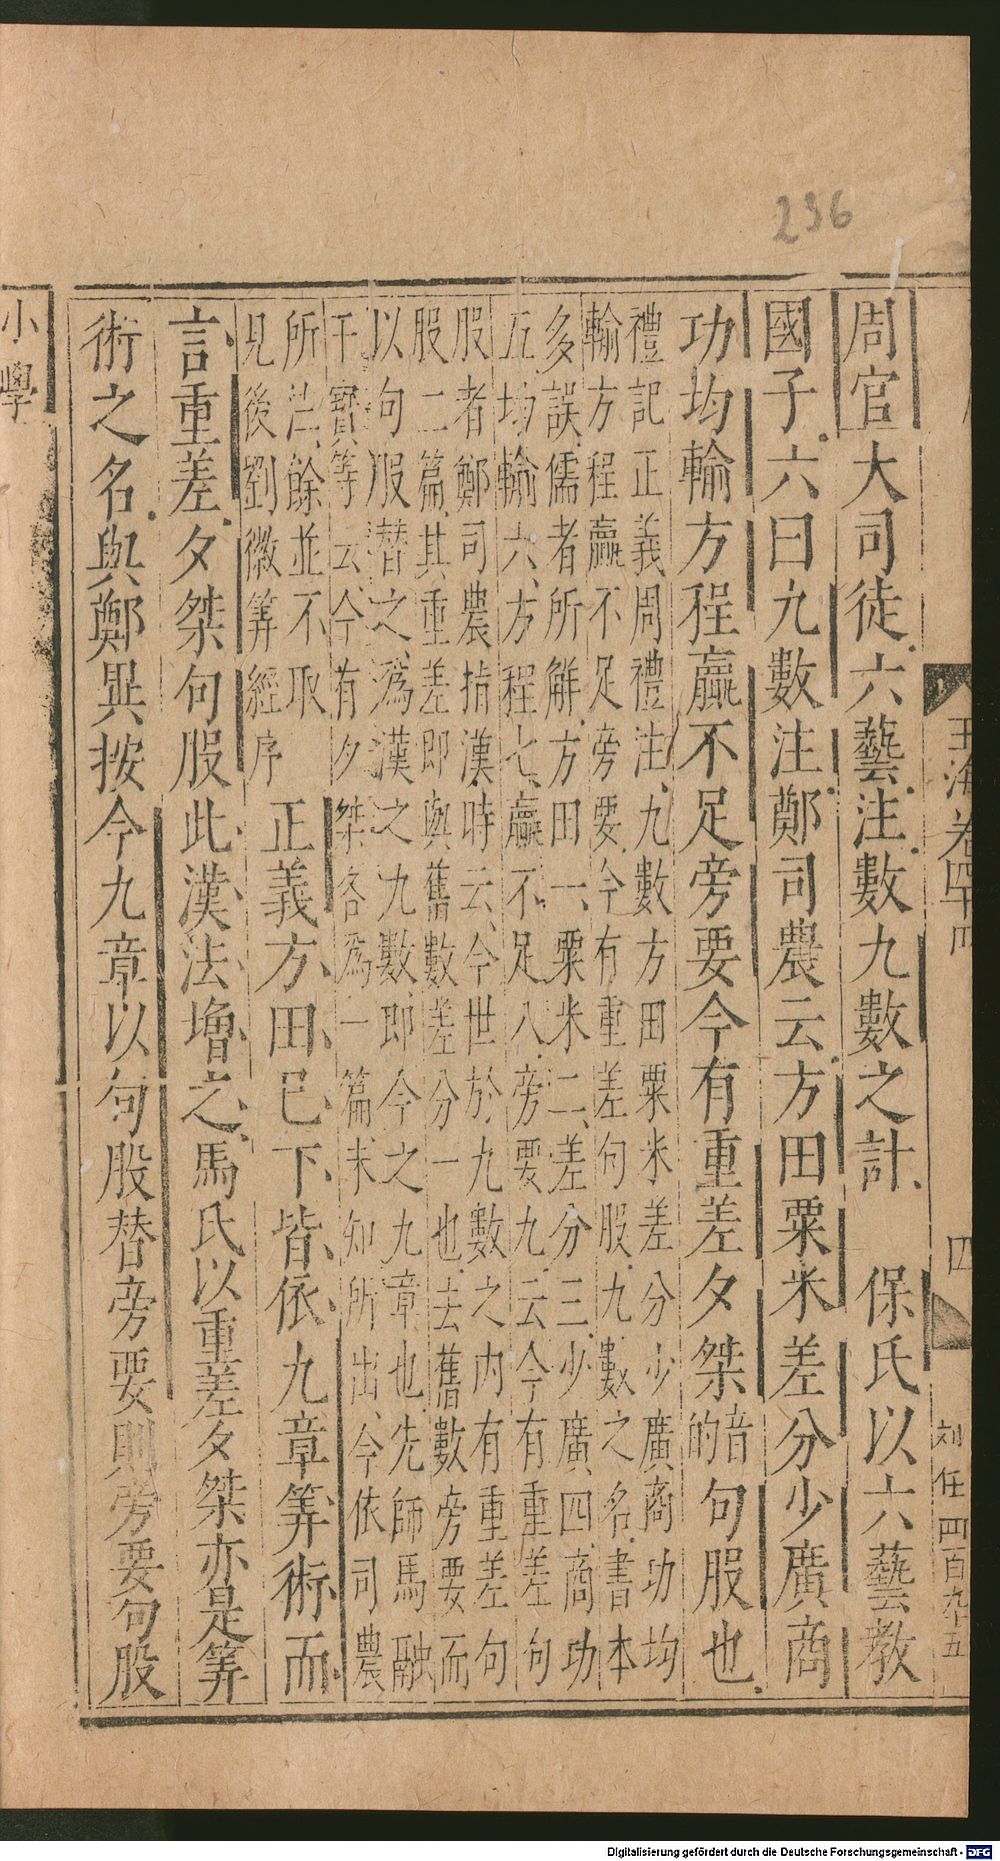 玉海卷四十四
四
刘任
四百九十五
周官大司徒六藝注數九數之計　保氏以六藝教
國子六曰九數注鄭司農云方田粟米差分少廣商
功均輸方程贏不足旁要今有重差夕桀音的句股也
禮記正義周禮注九數方田粟米差分少廣商功均
輸方程贏不足旁要今有重差句股九數之名書本
多誤儒者所解方田一粟米二差分三少廣四商功
五均輸六方程七贏不足八旁要九云今有重差句
股者鄭司農指漢時云今世於九數之内有重差句
股二篇其重差即與舊數差分一也去舊數旁要而
以句股替之為漢之九數即今之九章也先師馬融
干寶等云今有夕桀各為一篇未知所出今依司農
所注餘並不取
見後劉徽筭經序
正義方田已下皆依九章筭術而
言重差夕桀句股此漢法增之馬氏以重差夕桀亦是筭
術之名與鄭異按今九章以句股替旁要則旁要句股
小學
236
Digitalisierung gefördert durch die Deutsche Forschungsgemeinschaft - DFG